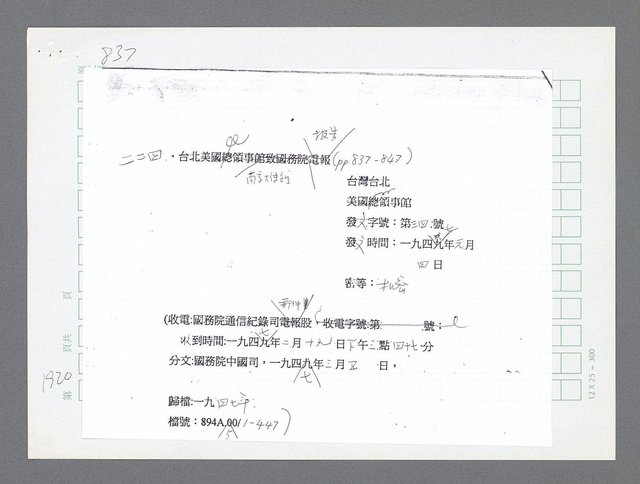 837
報告
二二四、台北美國總領事館致國務院電報(pp 837-847)
南京大使館
台灣台北
美國總領事館
發文字號：第三四號
發文時間：一九四九年元月
四日
密等：機密
(收電:國務院通信紀錄司電報股，收電字號:第 號：
收到時間:一九四九年二月十九日下午三點四十七分
分文:國務院中國司，一九四九年三月五 日，
七
歸檔:一九四七年
檔號：894A.00/1-447)
5
第 頁共 頁
1920
12 X 25 = 300